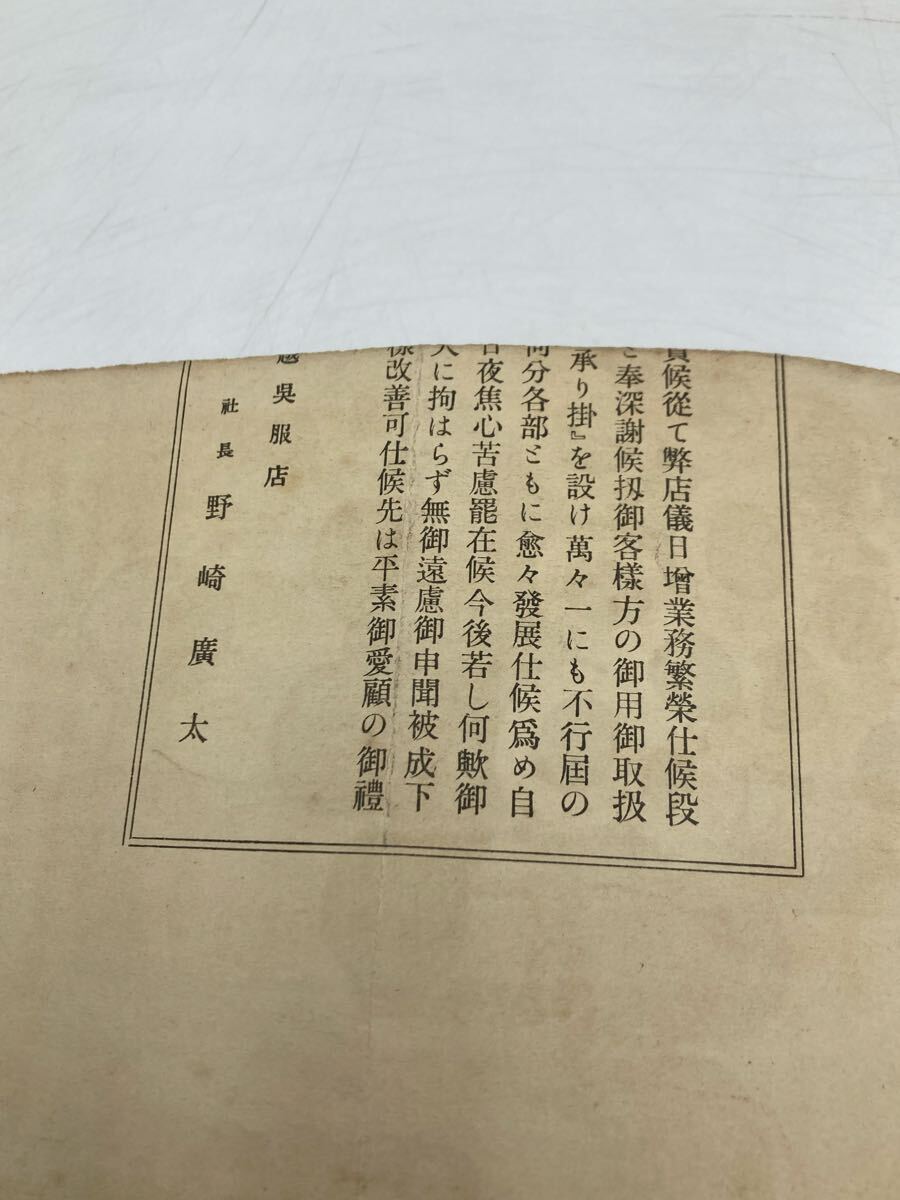 候從て弊店儀日增業務繁榮仕候段
奉深謝候扨御客樣方の御用御取扱
承り掛』を設け萬々一にも不行屆の
分各部ともに愈々發展仕候爲め自
夜焦心苦慮罷在候今後若し何歟御
に拘はらず無御遠慮御申聞被成下
樣改善可仕候先は平素御愛顧の御禮
越吳服店
社長 野崎廣太